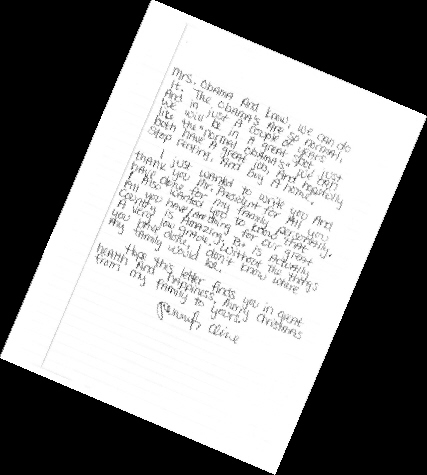 Mrs. Obama and know, we can do
it. The Obama's are so normal,
And in just a couple of years
we will be in a great spot just
like the "normal Obama's" we can
both have a great job and hopefully
stop renting, and buy a home.
I just wanted to write you and
thank you Mr. President for all you
have done for my family personally.
I also wanted you to know that
all you have/are doing for our great
country is amazing, Pa is actually
a very low Without the things
you have done, I don't know where
my family would be.
Hope this letter finds you in great
health and happiness, Merry Christmas
from my family to yours.